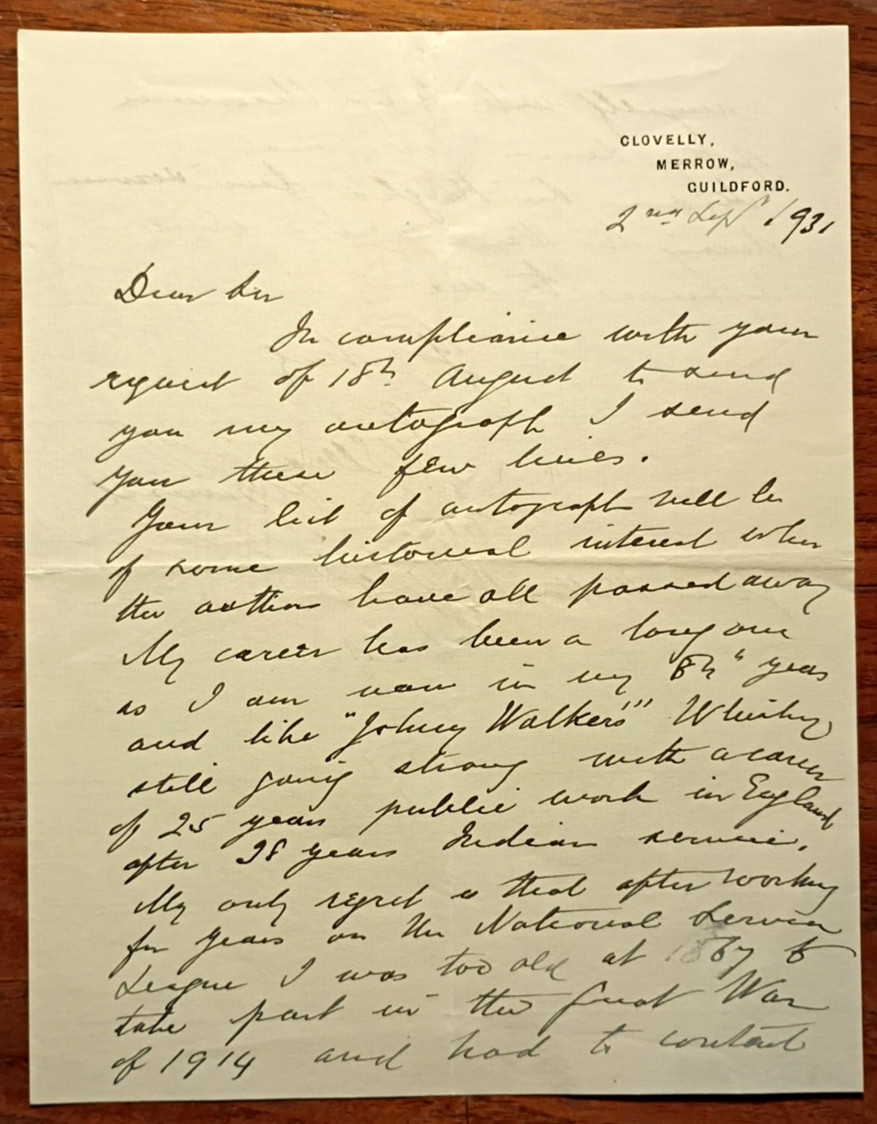 CLOVELLY,
MERROW,
GUILDFORD.
2nd Sept 1931
Dear Sir
In compliance with your
request of 18th August to send
you my autograph I send
you these few lines.
Your list of autograph will be
of some historical interest when
the authors have all passed away
My career has been a long one
as I am now in my year
and like "Johny Walkers" Whisky
still going strong with a career
of 25 years public work in England
after 38 years Indian service.
My only regret is that after working
for years on the National Service
League I was too old at 67 to
take part in the Great War
of 1914 and had to content